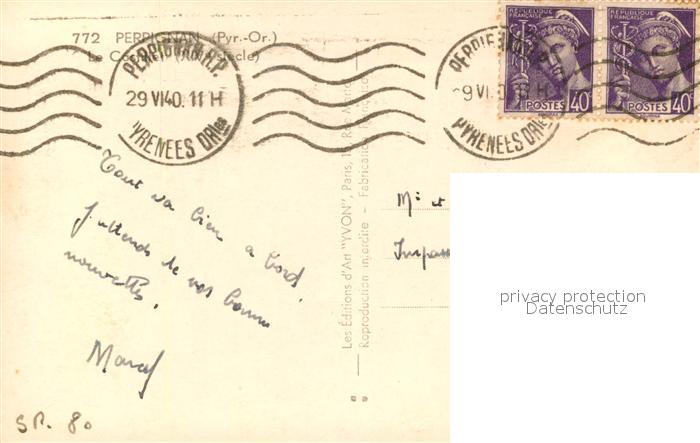 772 PERPIGNAN (Pyr.-Or.)
Le Castillet (XIVe siècle)
PERPIGNAN R.P.
29 VI 40. 11 H
PYRENEES ORles
PYRENEES ORles
REPUBLIQUE FRANÇAISE
POSTES 40c
REPUBLIQUE FRANÇAISE
POSTES 40c
Tout va bien a bord,
J'attends de vos bonnes
nouvelles,
Marcel
Les Éditions d'Art "YVON", Paris, 15, Rue
Reproduction interdite - Fabrication
Mr et
Impasse
privacy protection
Datenschutz
SP. 80